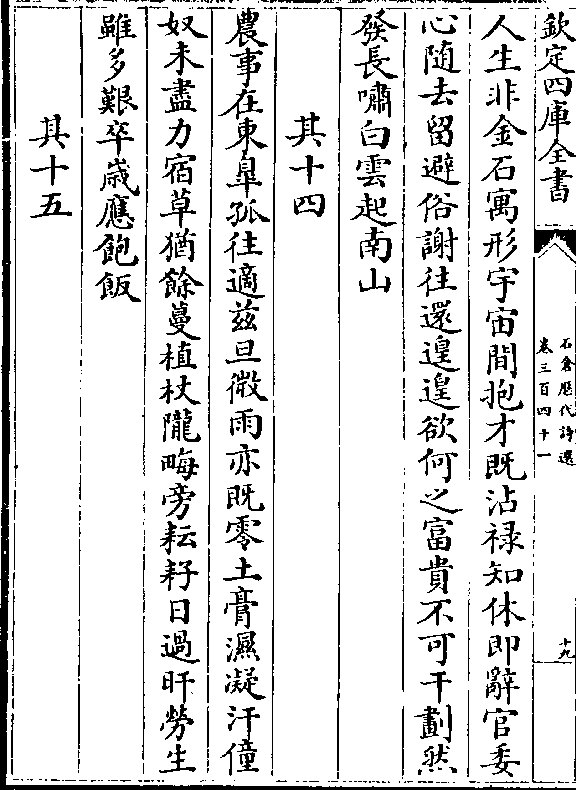 欽定四庫全書
石倉歷代詩選
卷三百四十一
十九
人生非金石寓形宇宙間抱才既沾禄知休即辭官委
心随去留避俗謝往還遑遑欲何之富貴不可干劃然
發長嘯白雲起南山
其十四
農事在東臯孤往適兹旦微雨亦既零土膏濕凝汗僮
奴未盡力宿草猶餘蔓植杖隴畮旁耘耔日過旰勞生
雖多艱卒歲應飽飯
其十五